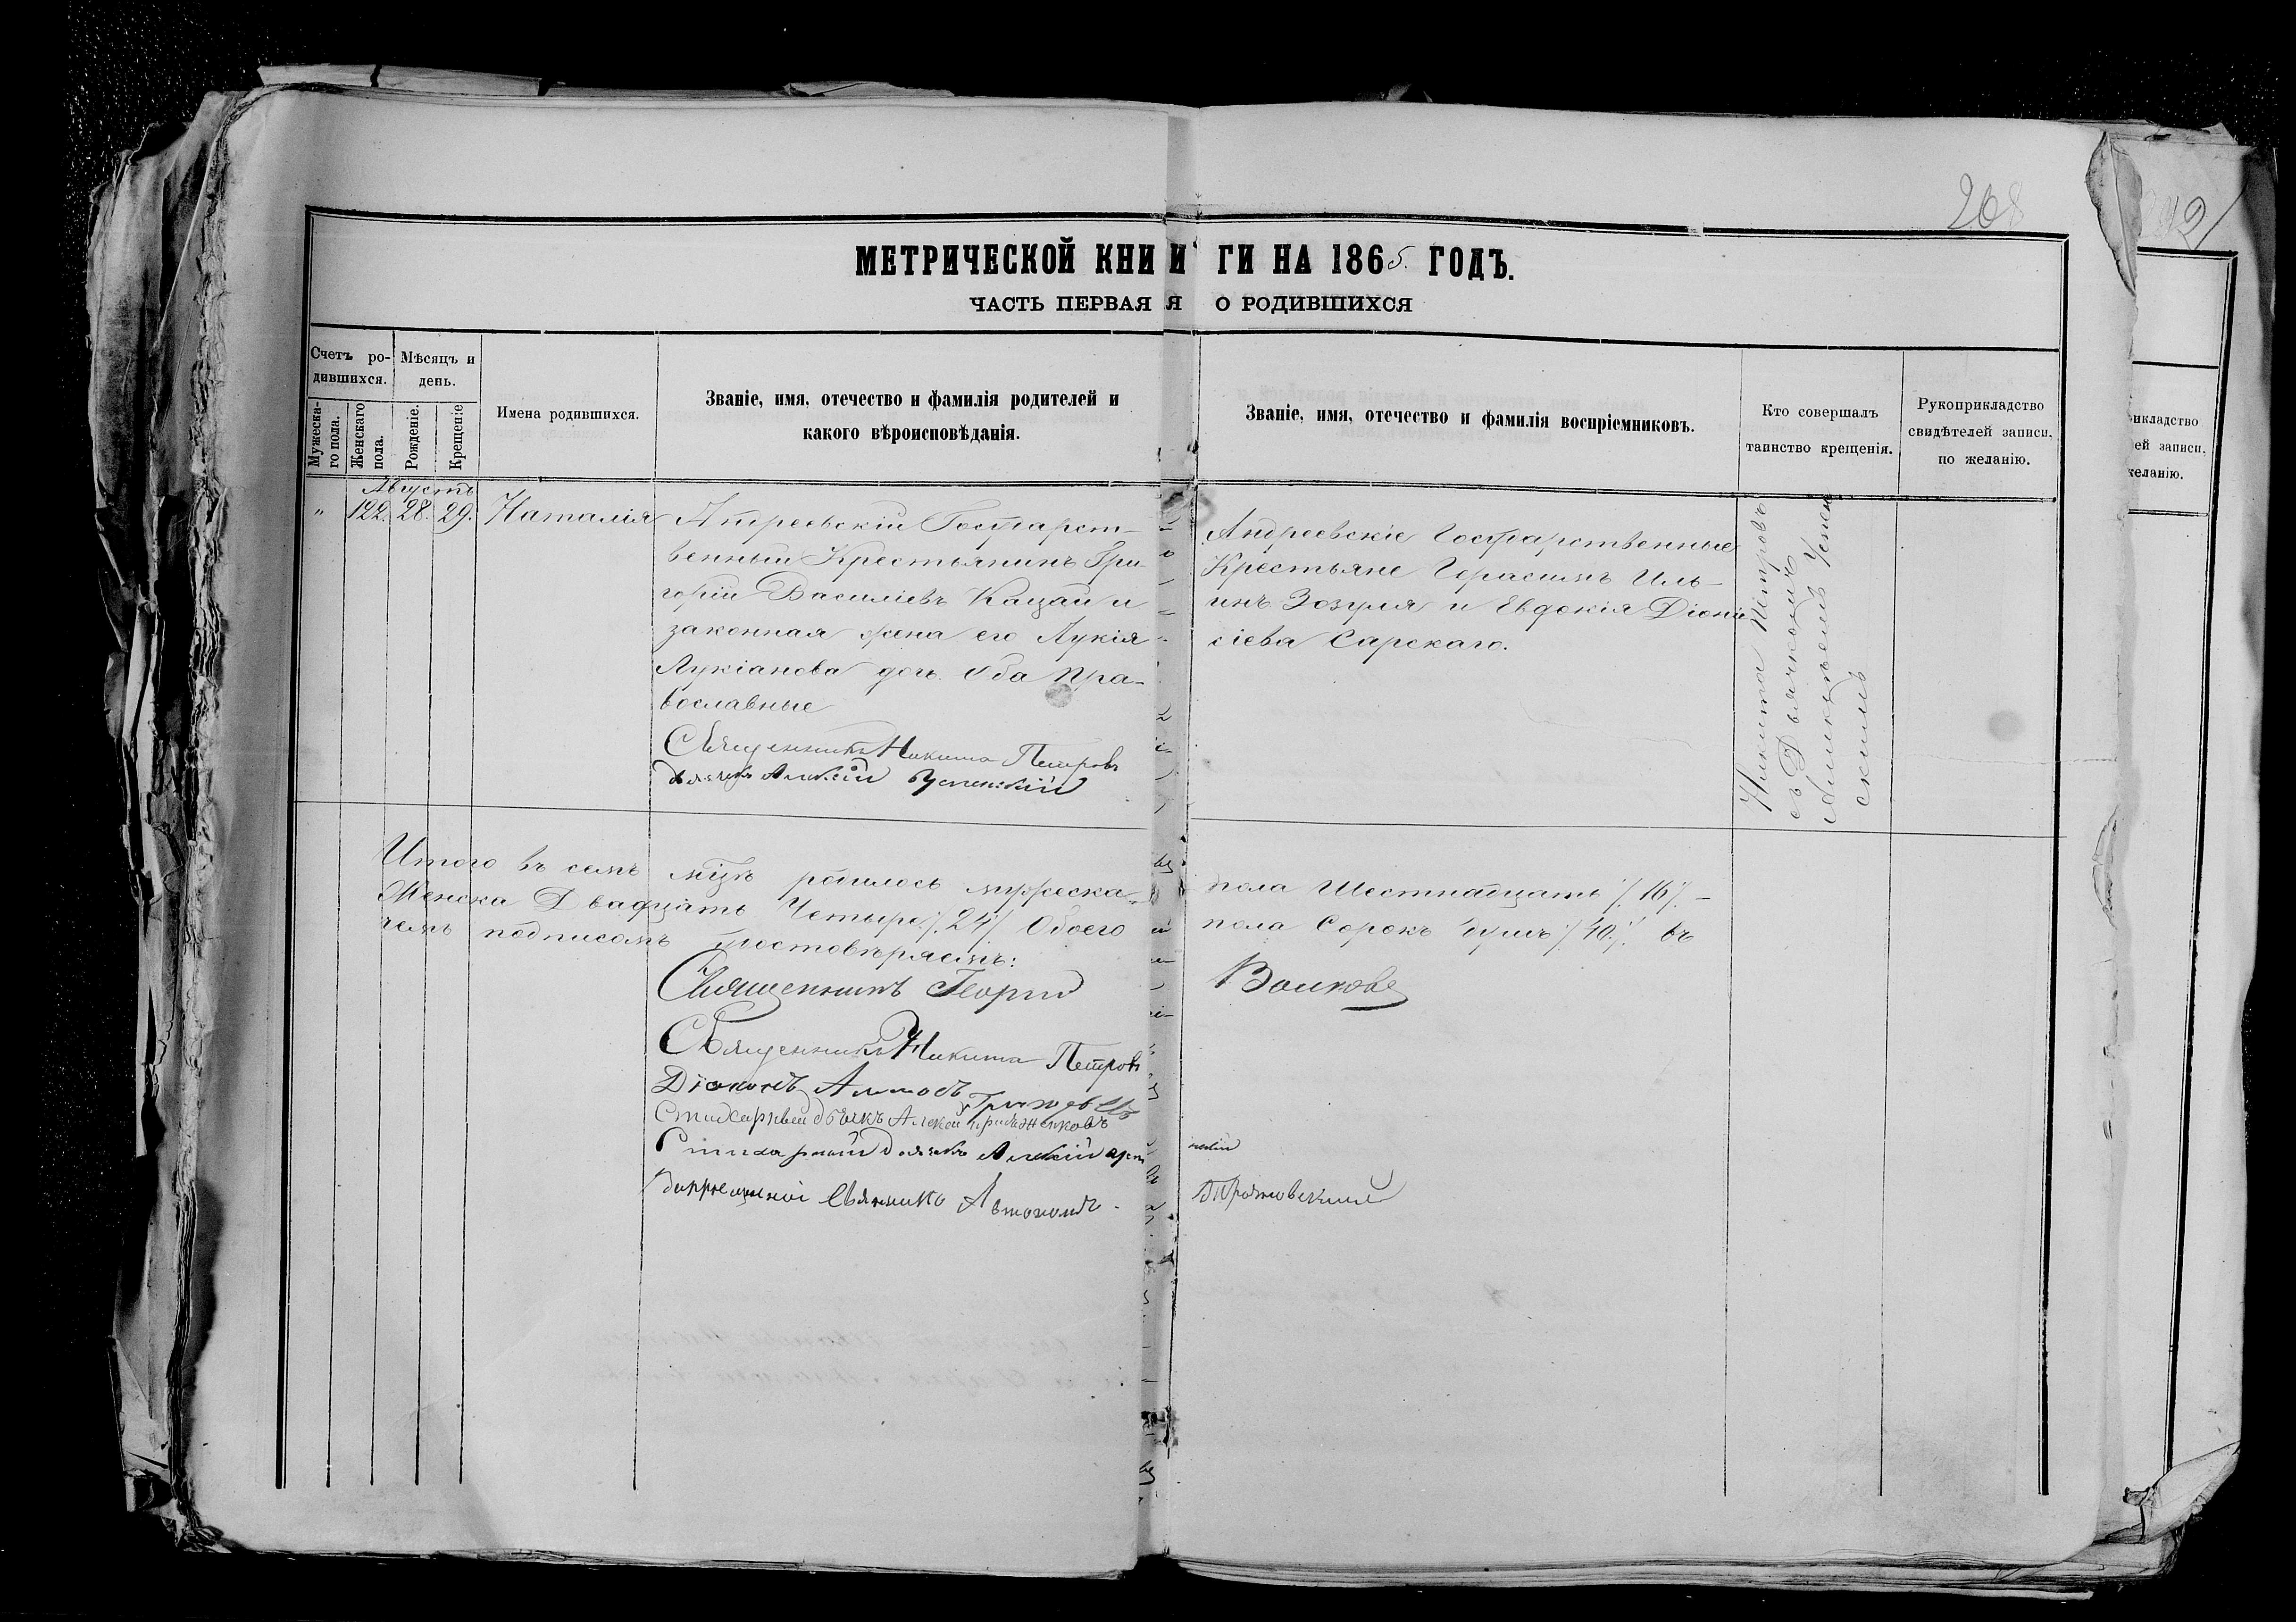 268
292
МЕТРИЧЕСКОЙ КНИ И ГИ НА 1865. ГОДЪ.
ЧАСТЬ ПЕРВАЯ Я О РОДИВШИХСЯ
Счетъ ро-
дившихся.
Мѣсяцъ и
день.
Мужеска-
го пола.
Женскаго
пола.
Рожденіе.
Крещеніе
Имена родившихся.
Званіе, имя, отечество и фамилія родителей и
какого вѣроисповѣданія.
Званіе, имя, отечество и фамилія воспріемниковъ.
Кто совершалъ
таинство крещенія.
Рукоприкладство
свидѣтелей записи,
по желанію.
икладство
ей записи,
желанію.
Августъ
" 122. 28. 29. Наталія
Андреевскій Государст-
венный Крестьянинъ Гри-
горій Василіевъ Кацай и
законная жена его Лукія
Лукіанова дочь. Оба Пра-
вославные
Священникъ Никита Петровъ
дьячекъ Алексій Успенскій
Андреевскіе Государственные
Крестьяне Герасимъ Иль-
инъ Зозуля и Евдокія Діони
сіева Сарскаго.
Никита Петровъ
съ Дьячкомъ
Алексѣемъ Успен
скимъ
Итого въ семъ мцѣ родилось мужеска
пола Шестнадцать /16/. -
Женска Двадцать Четыре /24/ Обоего
пола Сорокъ душъ /40/. въ
чемъ подписомъ
Священникъ Георгій Волковъ
Священникъ Никита Петровъ
Діаконъ
Стихарный дьячкъ Алексѣй
Стихарный дьячекъ Алексій
нскій
Священникъ Автономъ